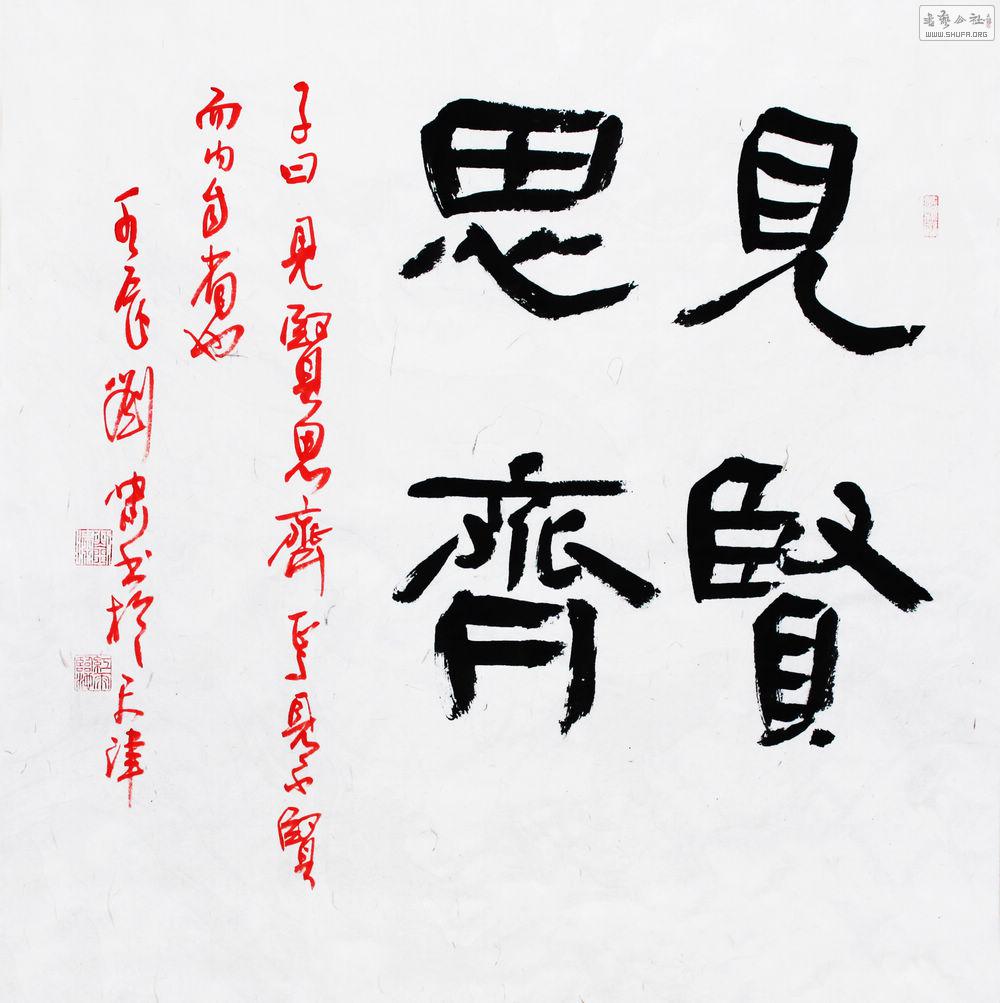 見賢
思齊
子曰見賢思齊焉見不賢
而内自省也
壬辰劉书於天津
书艺公社
WWW.SHUFA.ORG